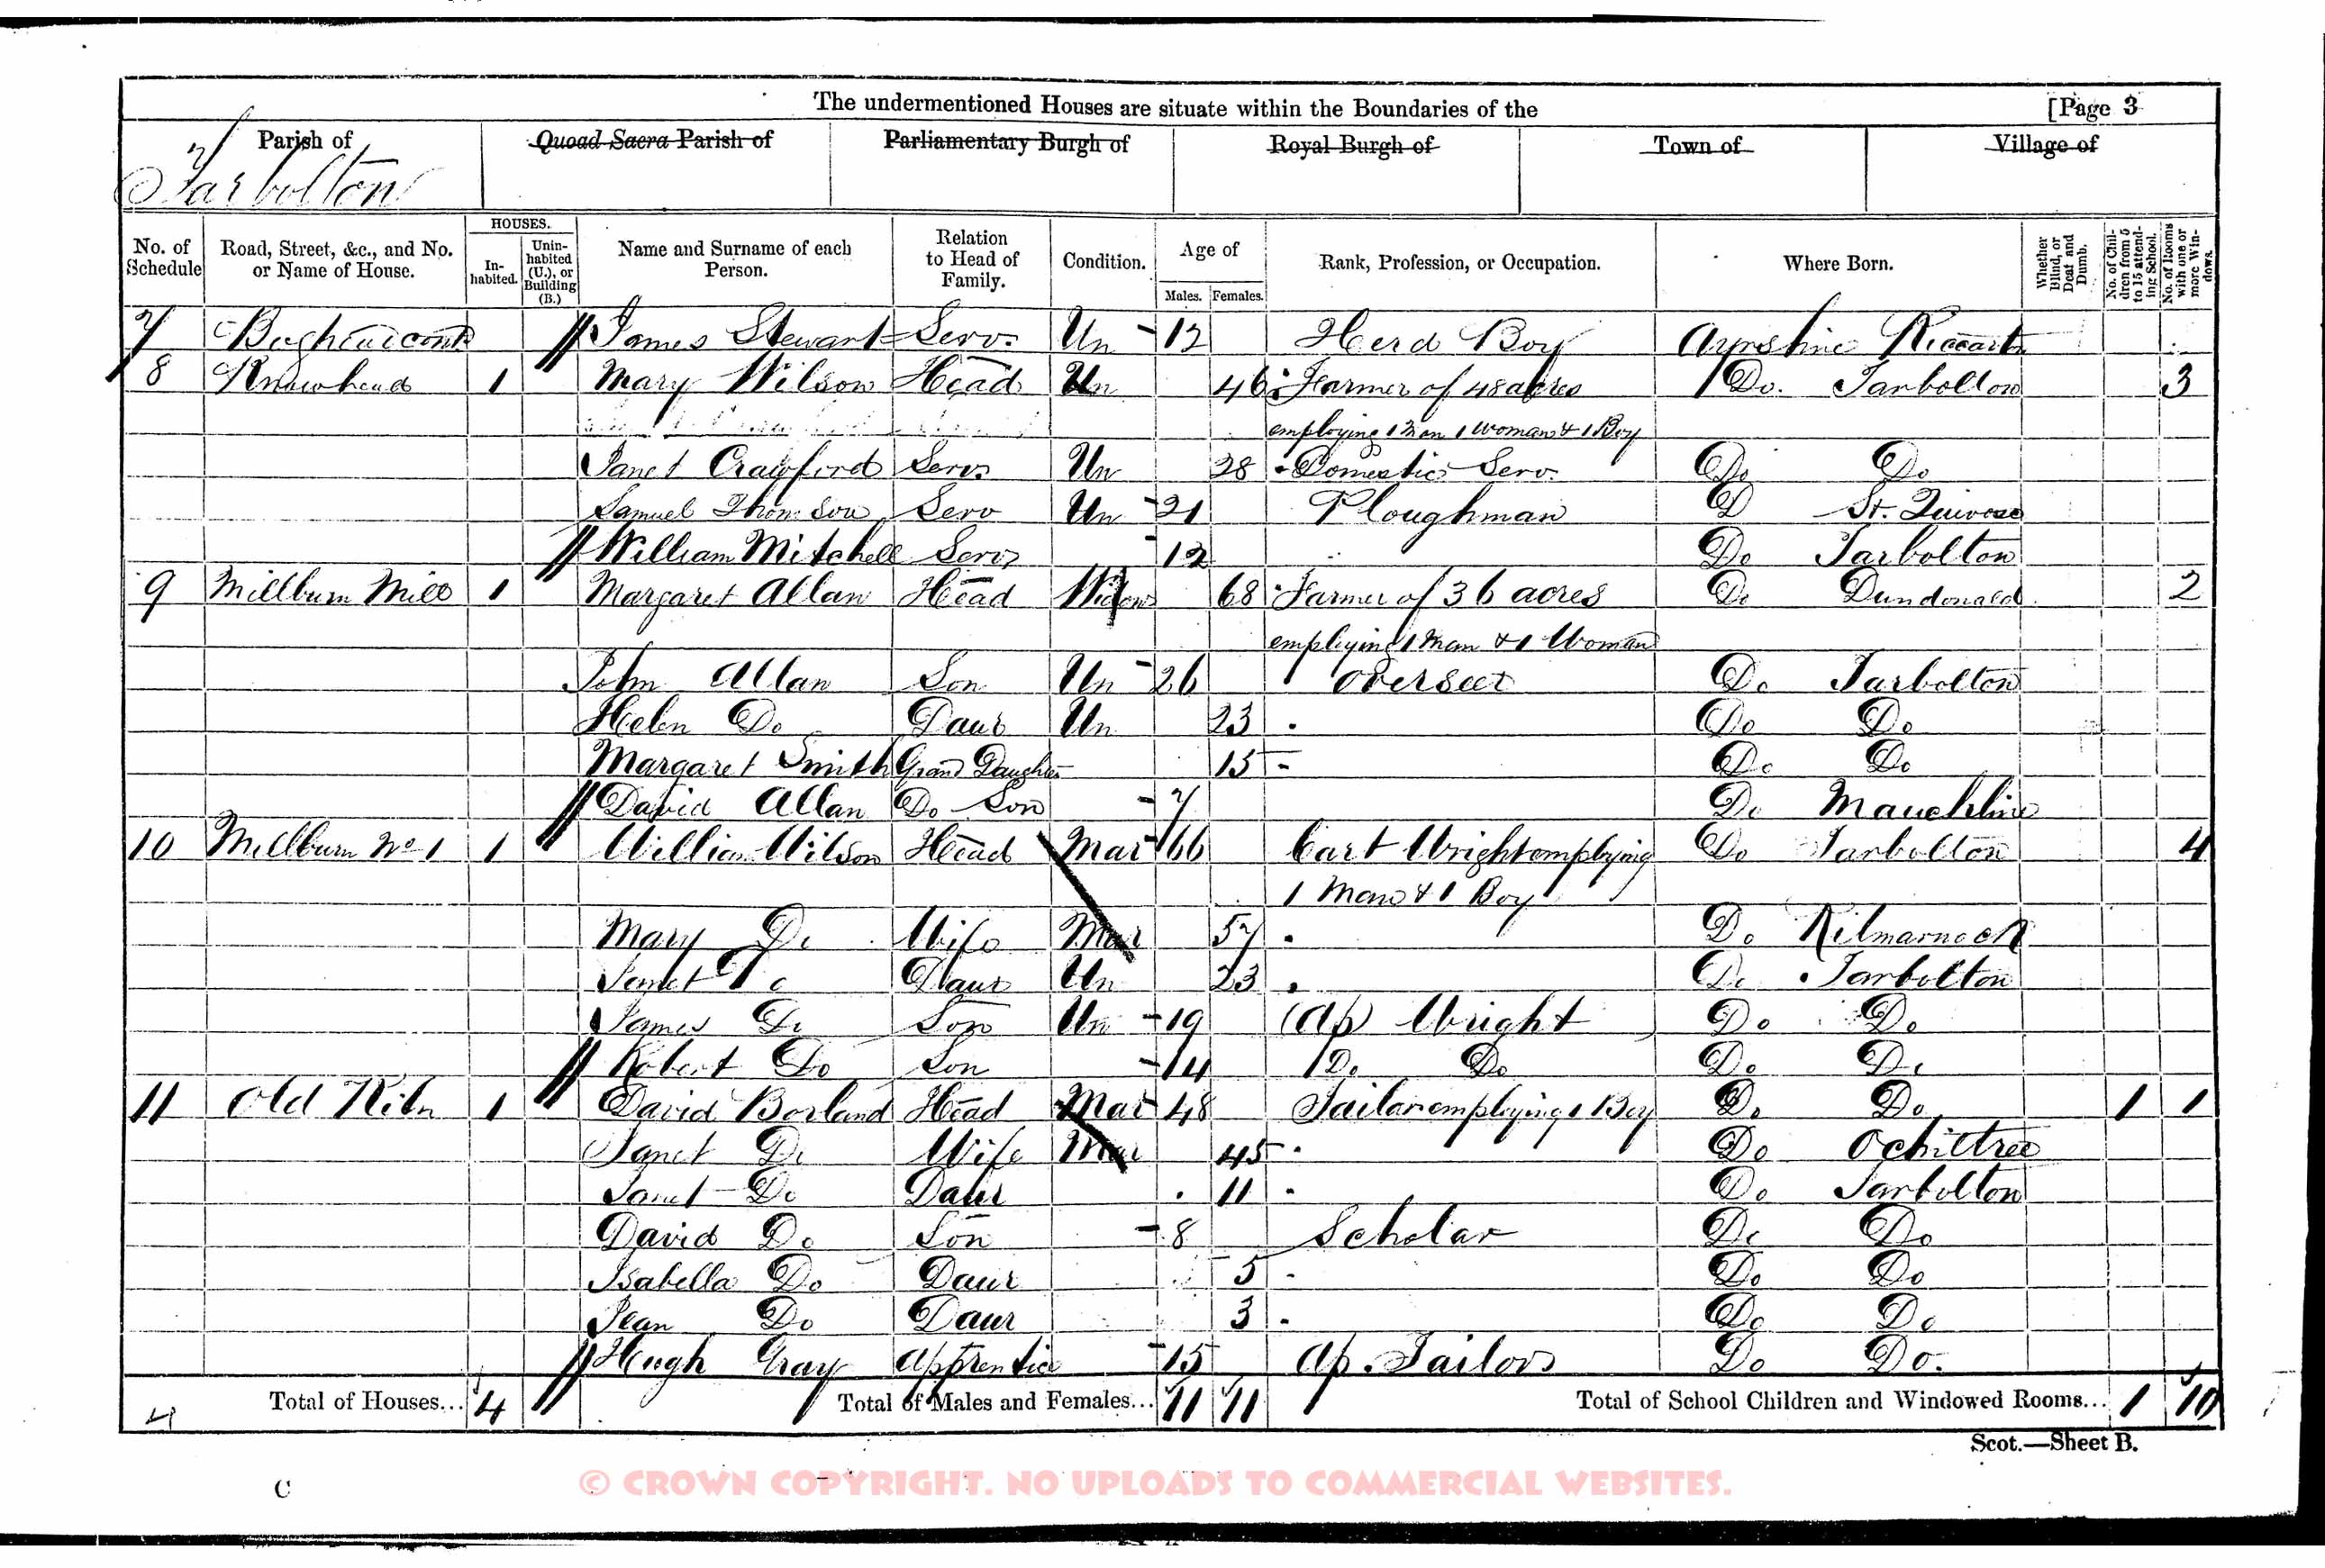 The undermentioned Houses are situate within the Boundaries of the [Page 3
Parish of Quoad Sacra Parish of Parliamentary Burgh of Royal Burgh of Town of Village of
Tarbolton
No. of Schedule Road, Street, &c., and No. or Name of House. HOUSES. Inhabited. Uninhabited (U.), or Building (B.) Name and Surname of each Person. Relation to Head of Family. Condition. Age of Males. Females. Rank, Profession, or Occupation. Where Born. Whether Blind, or Deaf and Dumb. No. of Children from 5 to 15 attending School. No. of Rooms with one or more Windows.
7 James Stewart Serv. Un 12 Herd Boy Ayrshire Riccarton
8 Knowhead 1 Mary Wilson Head Un 46 Farmer of 48 acres Do. Tarbolton 3
employing 1 Man 1 Woman & 1 Boy
Janet Crawford Serv. Un 28 Domestic Serv. Do Do
Samuel Thomson Serv Un 21 Ploughman D St. Quivox
William Mitchell Serv 12 Do Tarbolton
9 Millburn Mill 1 Margaret Allan Head Widow 68 Farmer of 36 acres Do Dundonald 2
employing 1 Man & 1 Woman
John Allan Son Un 26 Do Tarbolton
Helen Do Daur Un 23 Do Do
Margaret Smith Grand Daughter 15 Do Do
David Allan Do Son 7 Do Mauchline
10 Millburn No 1 1 William Wilson Head Mar 66 Cart Wright employing Do Tarbolton 4
1 Man & 1 Boy
Mary Do Wife Mar 57 Do Kilmarnock
Janet Do Daur Un 23 Do Tarbolton
James Do Son Un 19 (Ap) Wright Do Do
Robert Do Son 14 Do Do Do Do
11 Old Kiln 1 David Borland Head Mar 48 Tailor employing 1 Boy Do Do 1 1
Janet Do Wife Mar 45 Do Ochiltree
Janet Do Daur 11 Do Tarbolton
David Do Son 8 Scholar Do Do
Isabella Do Daur 5 Do Do
Jean Do Daur 3 Do Do
Hugh Gray Apprentice 15 Ap. Tailor Do Do.
4 Total of Houses... 4 Total of Males and Females... 11 11 Total of School Children and Windowed Rooms... 1 10
Scot.—Sheet B.
C
© CROWN COPYRIGHT. NO UPLOADS TO COMMERCIAL WEBSITES.